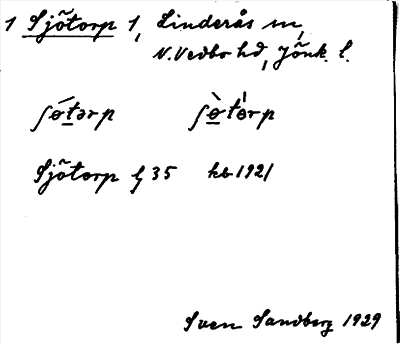 1 Sjötorp 1, Linderås sn,
N. Vedbo hd, Jönk. l.
ʃǿtərp ʃø̀tø̍rp
Sjötorp lj 35 kb 1921
Sven Sandberg 1929